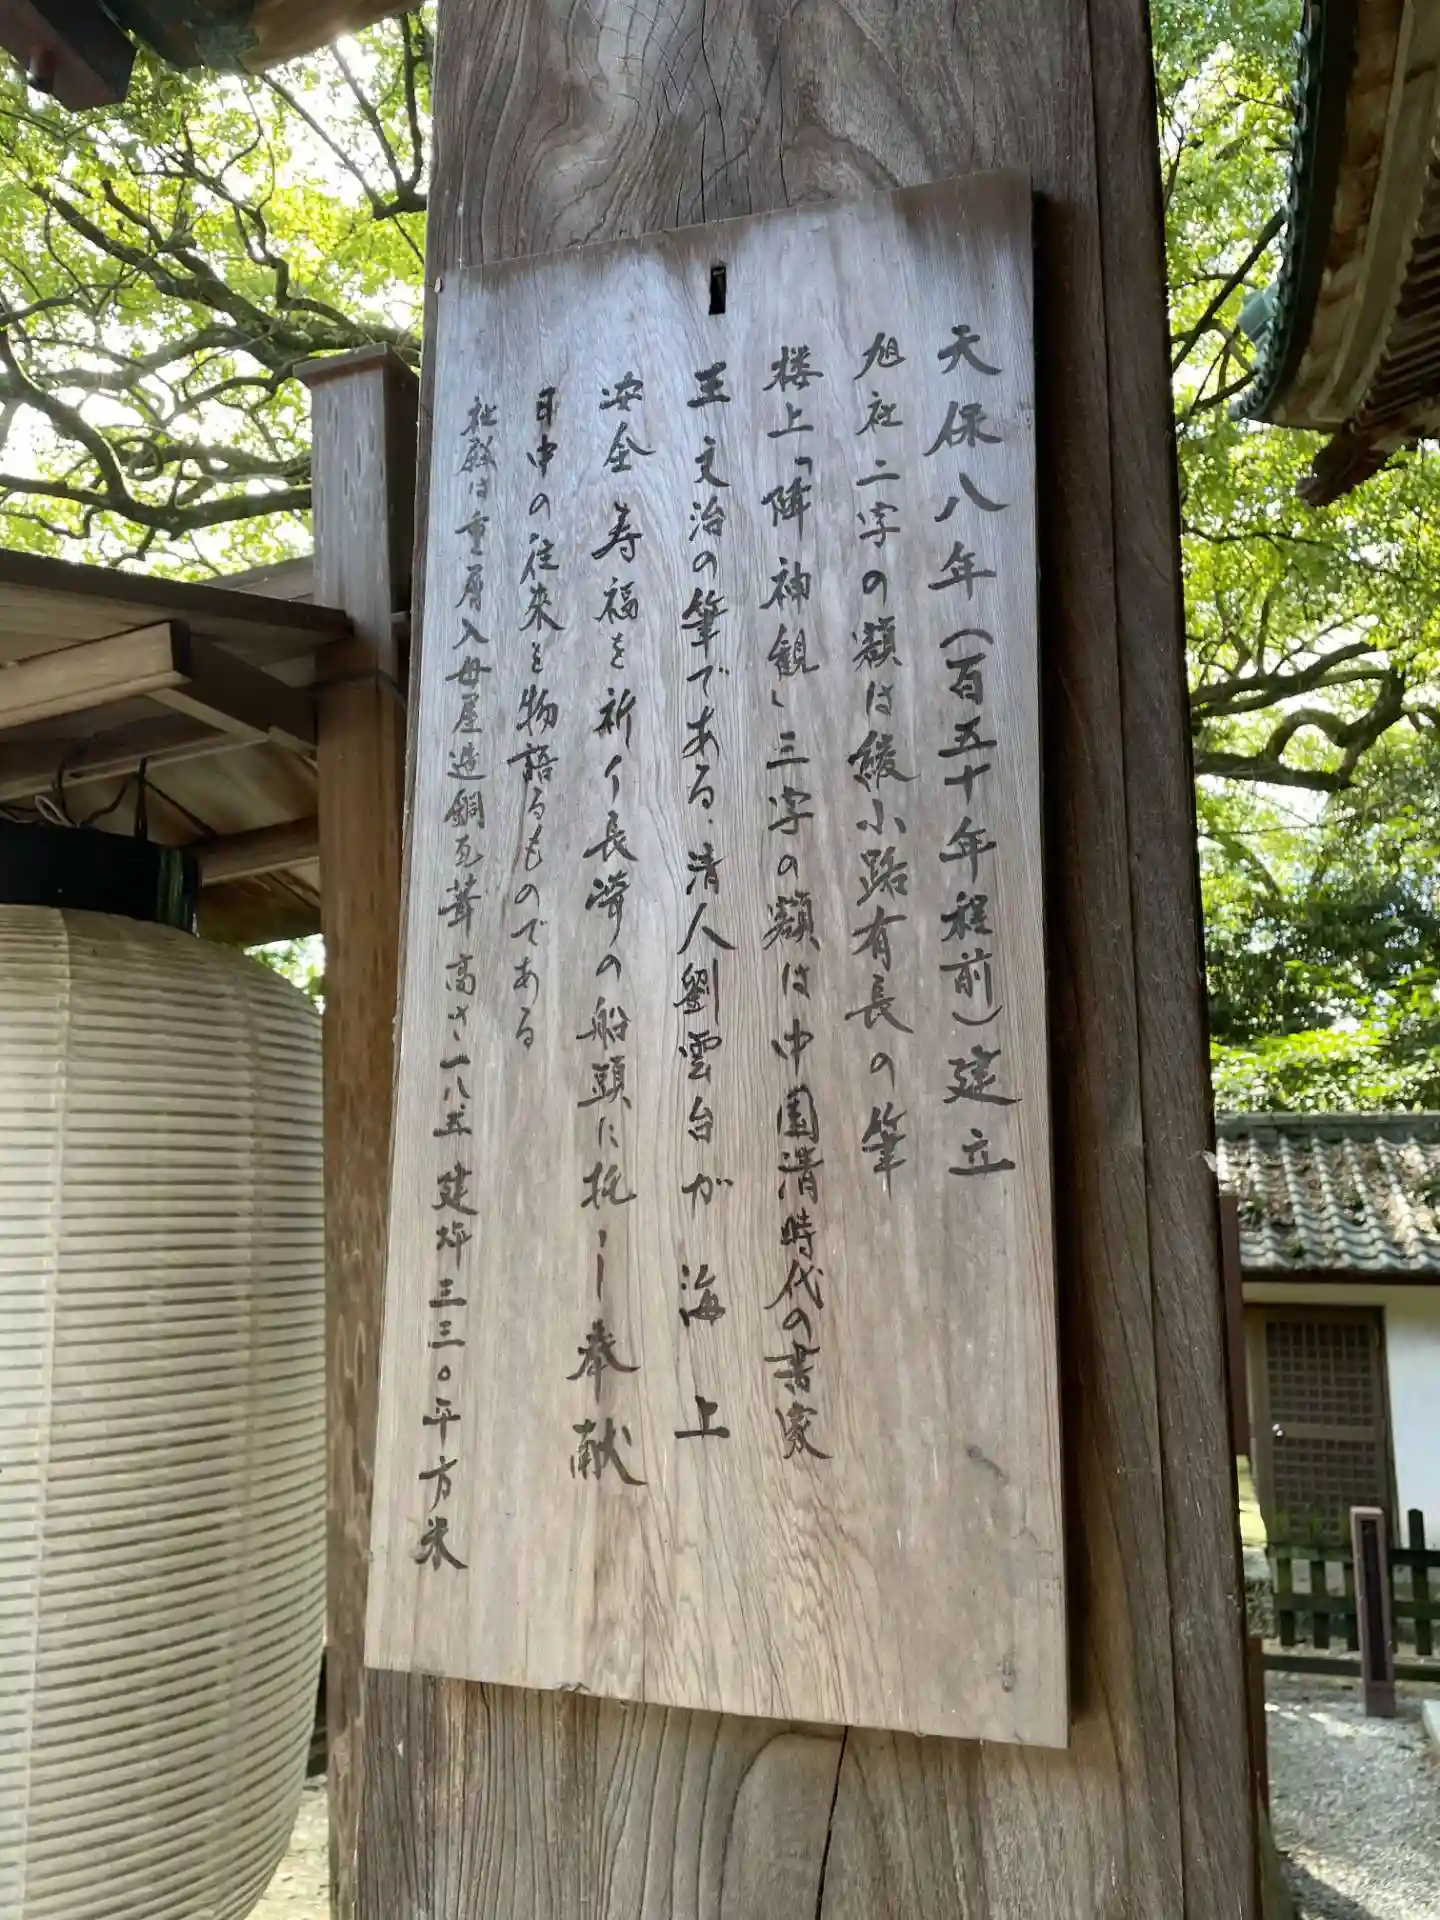 天保八年(百五十年程前)建立
旭社二字の額は綾小路有長の筆
楼上「降神観」三字の額は中国清時代の書家
王文治の筆である、清人劉雲台が海上
安全寿福を祈イ長崎の船頭に托し奉献
日中の往来を物語るものである
社殿は重層入母屋造銅瓦葺高さ一八五建坪三三〇平方米